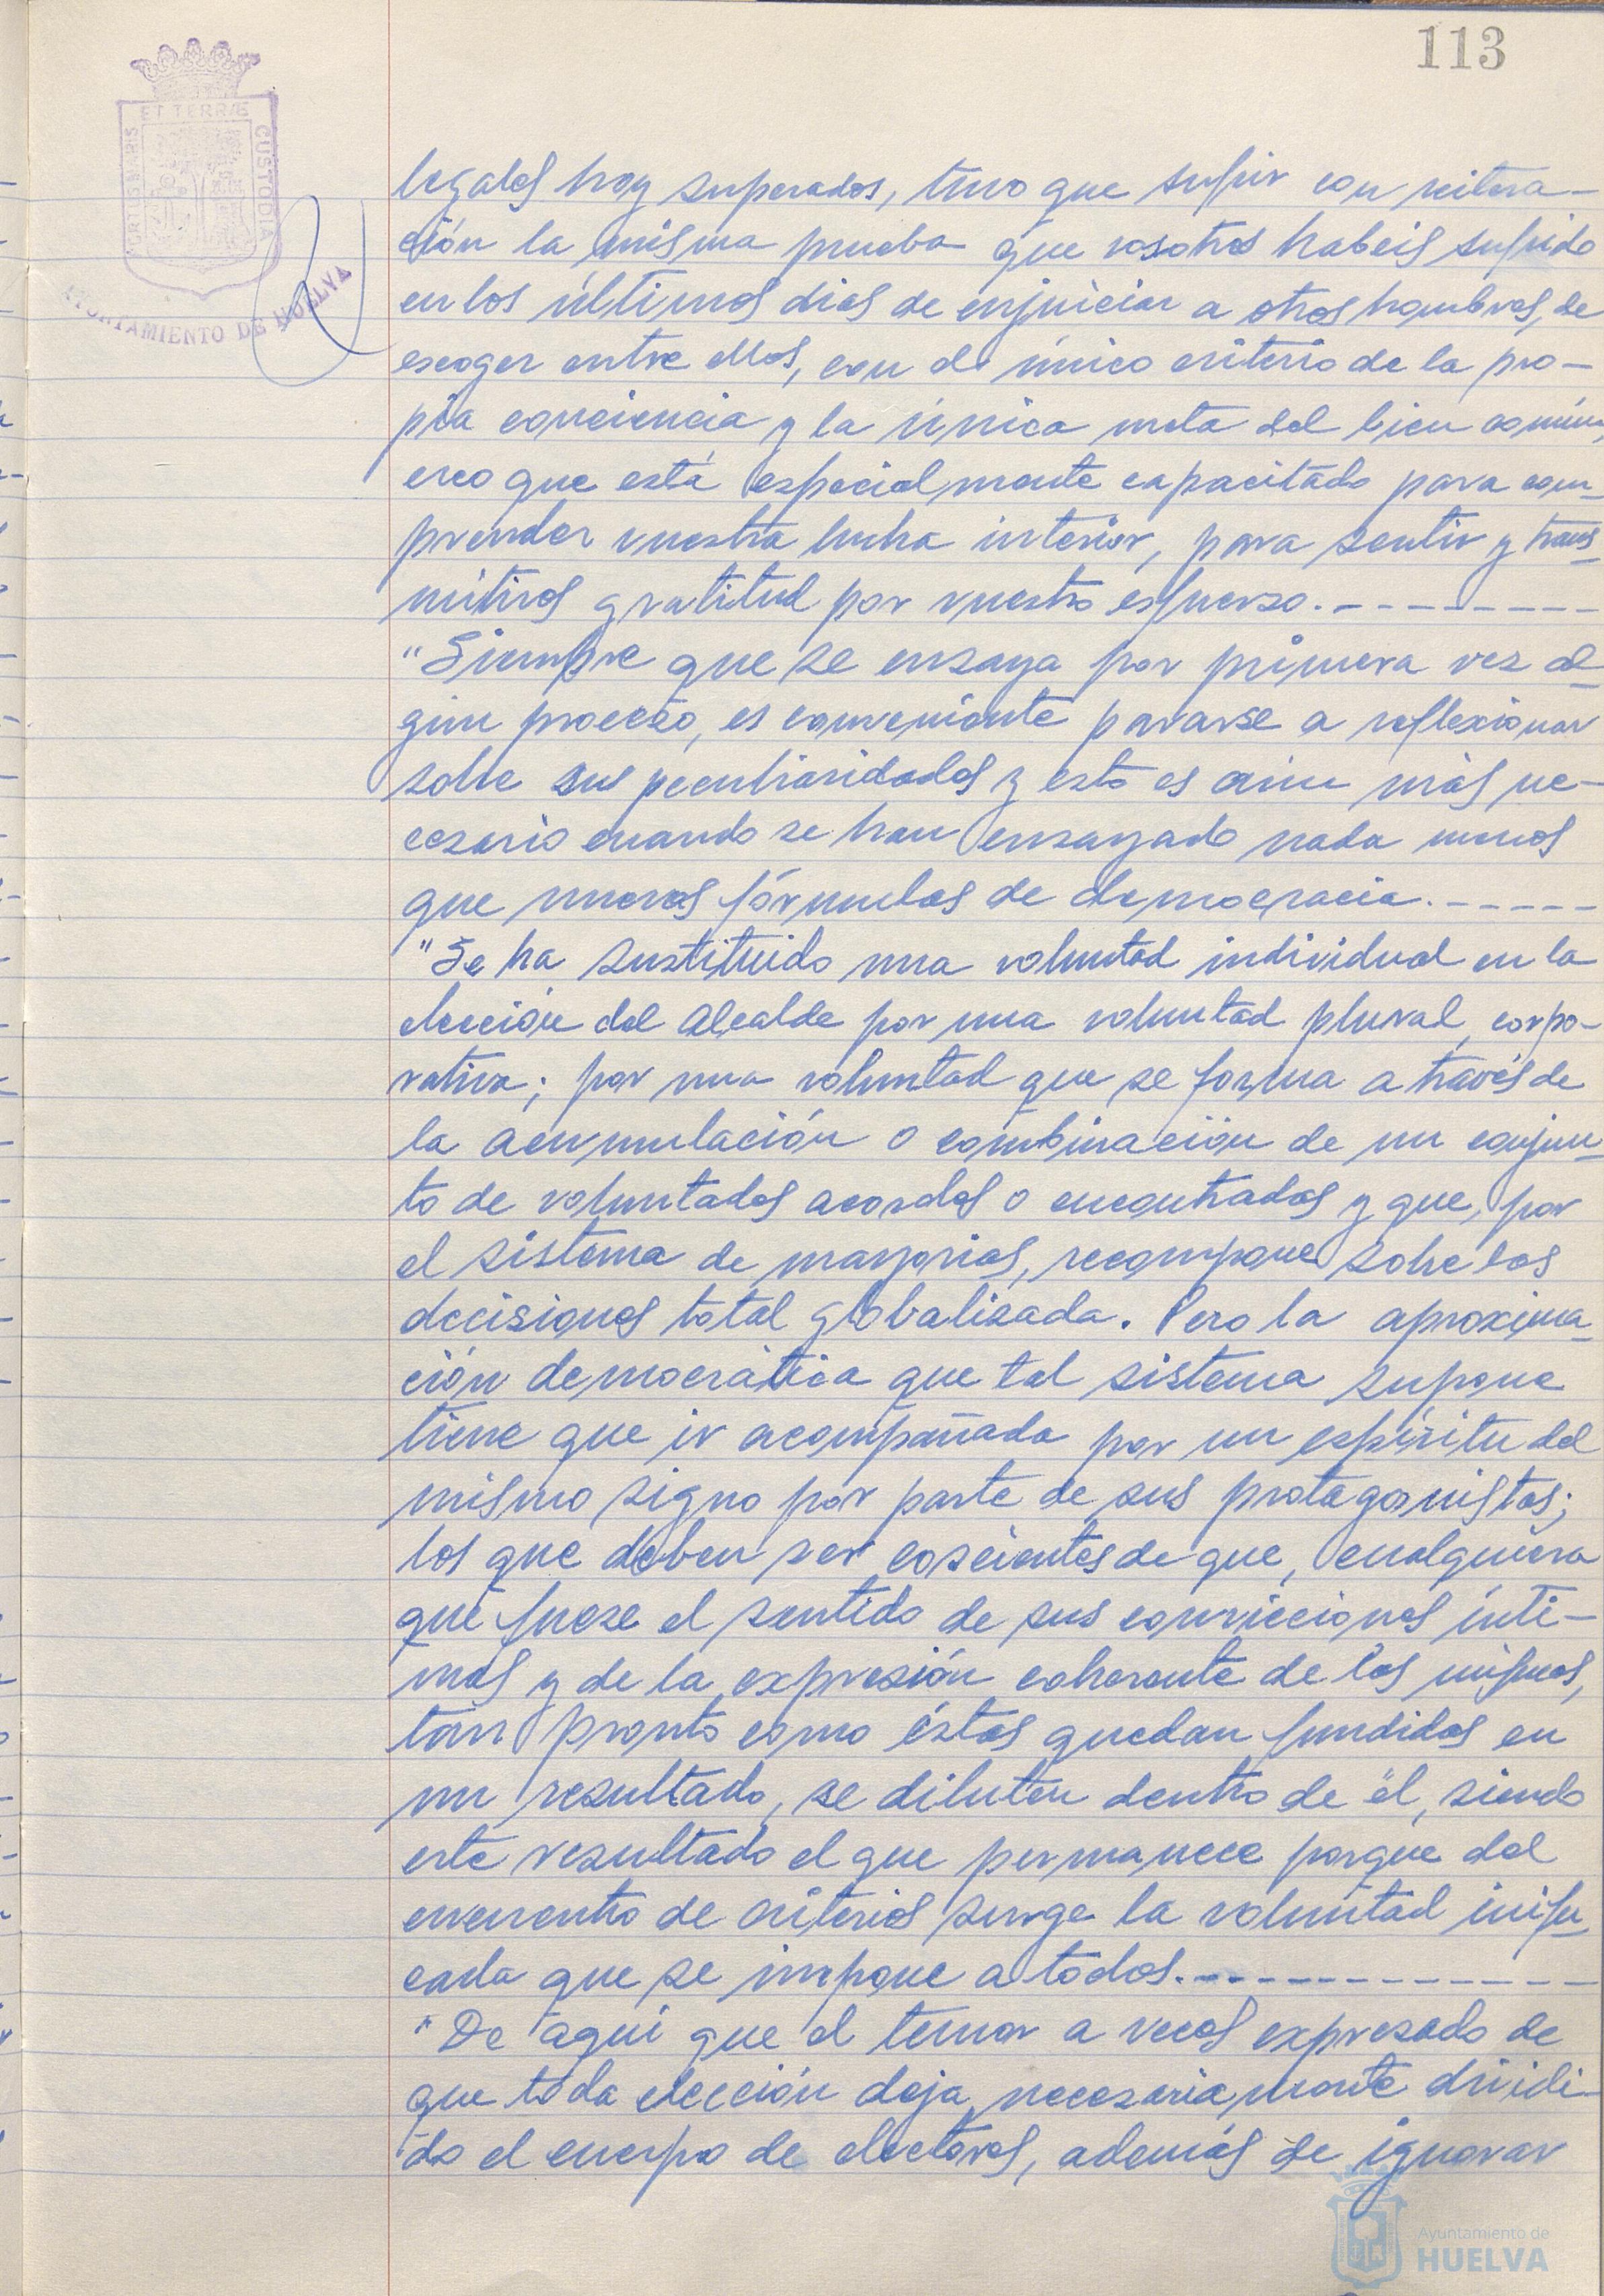 113
PORTUS MARIS
ET TERRÆ
CUSTODIA
AYUNTAMIENTO DE HUELVA
legales hoy superados, tuvo que sufrir con reitera-
ción la misma prueba que vosotros habeis sufrido
en los últimos dias de enjuiciar a otros hombres, de
escoger entre ellos, con el único criterio de la pro-
pia conciencia y la única meta del bien común,
creo que está especialmente capacitado para com-
prender vuestra lucha interior, para sentir y trans-
mitiros gratitud por vuestro esfuerzo.---------
"Siempre que se ensaya por primera vez al-
gún proceso, es conveniente pararse a reflexionar
sobre sus peculiaridades y esto es aún más ne-
cesario cuando se han ensayado nada menos
que nuevas fórmulas de democracia.-----
"Se ha sustituido una voluntad individual en la
elección del Alcalde por una voluntad plural, corpo-
rativa; por una voluntad que se forma a través de
la acumulación o combinación de un conjun-
to de voluntades acordes o encontradas y que, por
el sistema de mayorías, recompone sobre las
decisiones total globalizada. Pero la aproxima-
ción democrática que tal sistema supone
tiene que ir acompañada por un espíritu del
mismo signo por parte de sus protagonistas;
los que deben ser coscientes de que, cualquiera
que fuese el sentido de sus convicciones ínti-
mas y de la expresión coherente de las mismas,
tan pronto como éstas quedan fundidas en
un resultado, se diluten dentro de él, siendo
este resultado el que permanece porque del
encuentro de criterios surge la voluntad
cada que se impone a todos.-------------
"De aquí que el temor a veces expresado de
que toda elección deja necesariamente dividi-
do el cuerpo de electores, además de ignorar
Ayuntamiento de
HUELVA